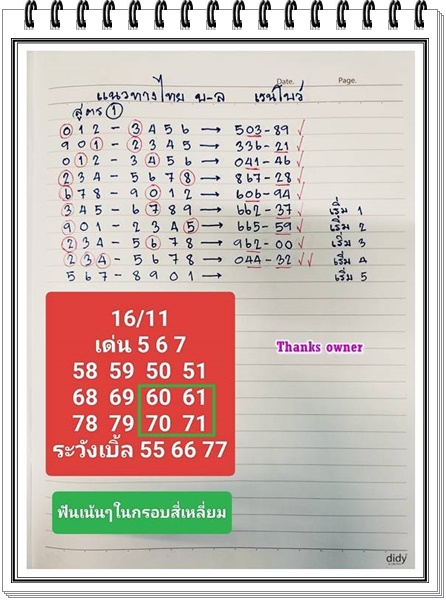 Date. Page.
แนวทางไทย บ-ล เรนโบว์
สูตร 1
012 - 3456 → 503-89 ✓
901 - 2345 → 336-21 ✓
012 - 3456 → 041-46 ✓
234 - 5678 → 867-28 ✓
678 - 9012 → 606-94 ✓
345 - 6789 → 662-37 ✓ เริ่ม 1
901 - 2345 → 665-59 ✓ เริ่ม 2
234 - 5678 → 962-00 ✓ เริ่ม 3
234 - 5678 → 044-32 ✓✓ เริ่ม 4
567 - 8901 → เริ่ม 5
16/11
เด่น 5 6 7
58 59 50 51
68 69 60 61
78 79 70 71
ระวังเบิ้ล 55 66 77
Thanks owner
ฟันเน้นๆในกรอบสี่เหลี่ยม
didy